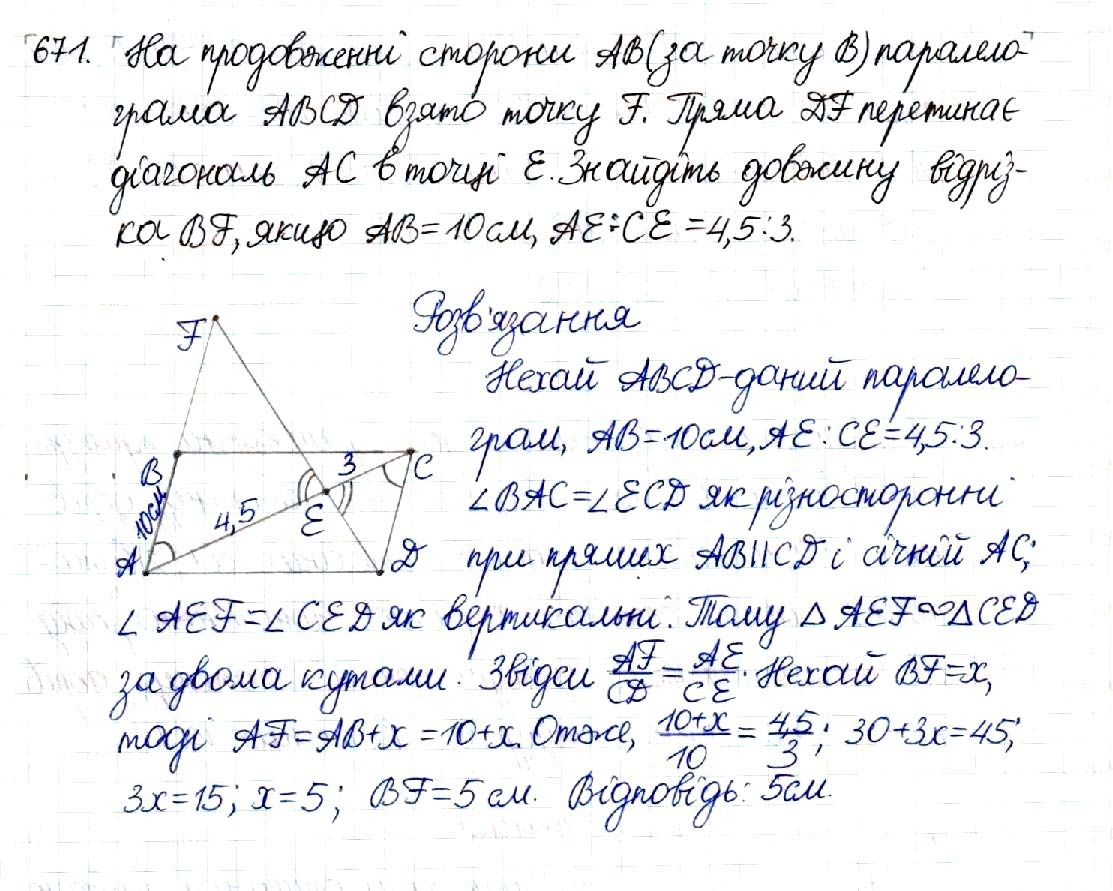 671. На продовженні сторони AB (за точку B) паралело-
грама ABCD взято точку F. Пряма DF перетинає
діагональ AC в точці E. Знайдіть довжину відріз-
ка BF, якщо AB=10см, AE:CE=4,5:3.
Розв'язання
Нехай ABCD-даний парало-
грам, AB=10см, AE:CE=4,5:3.
∠BAC=∠ECD як різносторонні
при прямих AB||CD і січній AC;
∠AEF=∠CED як вертикальні. Тому △AEF∾△CED
за двома кутами. Звідси AF/CD=AE/CE. Нехай BF=x,
тоді AF=AB+x=10+x. Отже, (10+x)/10=4,5/3; 30+3x=45;
3x=15; x=5; BF=5см. Відповідь: 5см.
F
B
3
C
10см
4,5
E
A
D